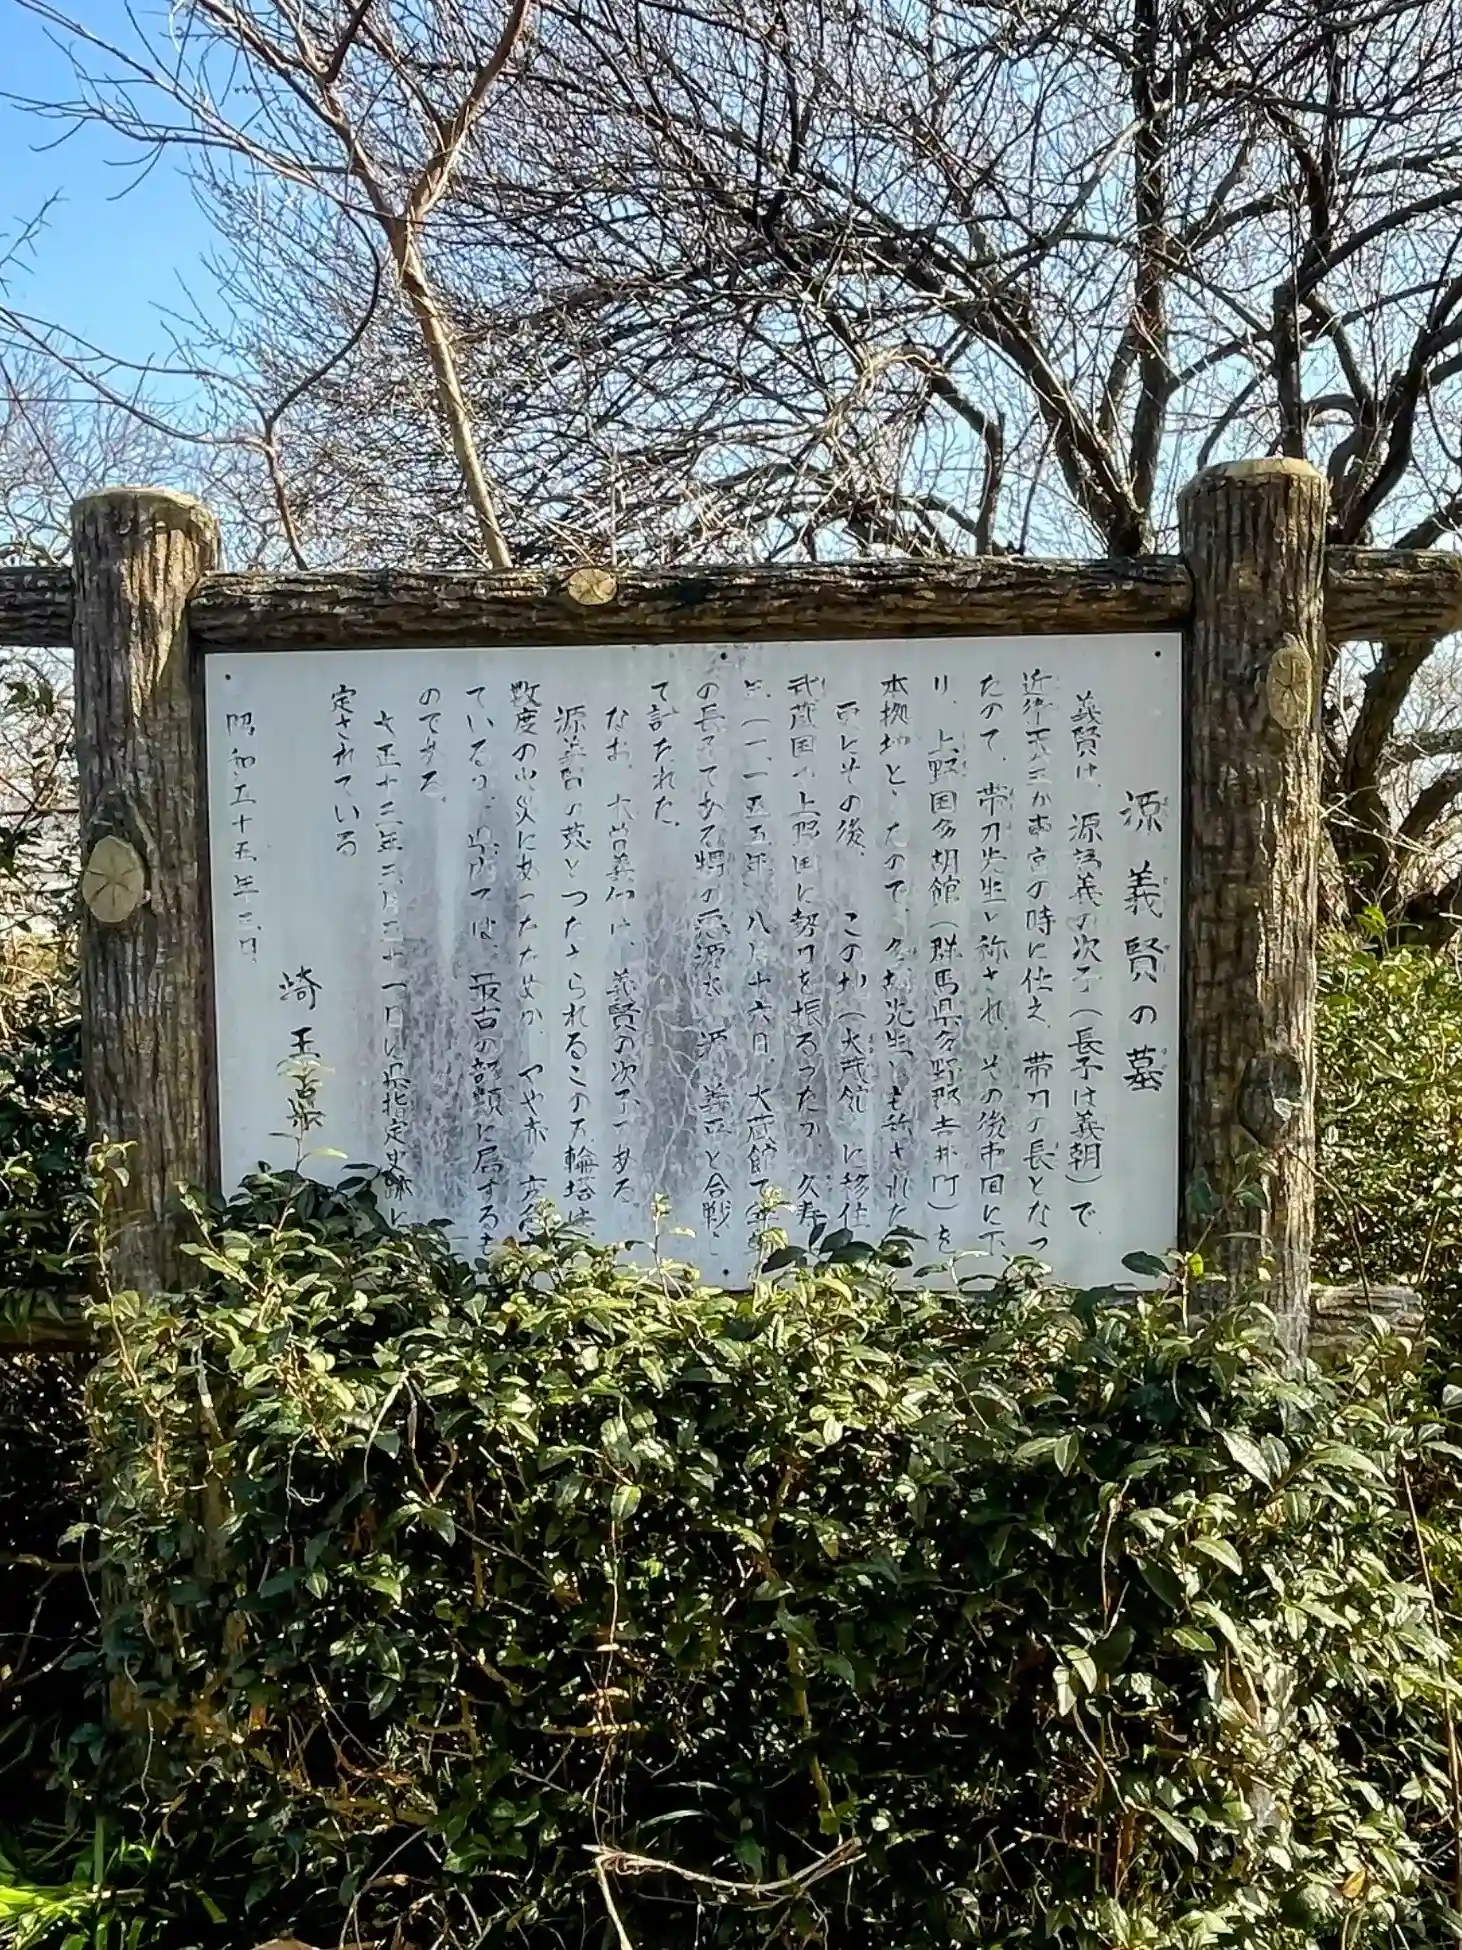 源義賢の墓
義賢は、源為義の次子(長子は義朝)で、
近衛天皇が東宮の時に仕え、帯刀の長となっ
たので、帯刀先生と称され、その後東国に下
り、上野国多胡館(群馬県多野郡吉井町)を
本拠地としたので、多胡先生とも称された
更にその後、この地(大蔵館)に移住
武蔵国や上野国に勢力を振るったが、久寿
年(一一五五年)八月十六日、大蔵館で
の長子である甥の悪源太 源 義平と合戦し
て討たれた。
なお、木曽義仲は、義賢の次子である。
源義賢の墓とつたえられるこの五輪塔は
数度の火災にあったためか、やや赤
ているが、県内では、最古の部類に属するも
のである。
大正十三年三月三十一日に県指定史跡に
定されている
昭和五十五年三月
埼玉県